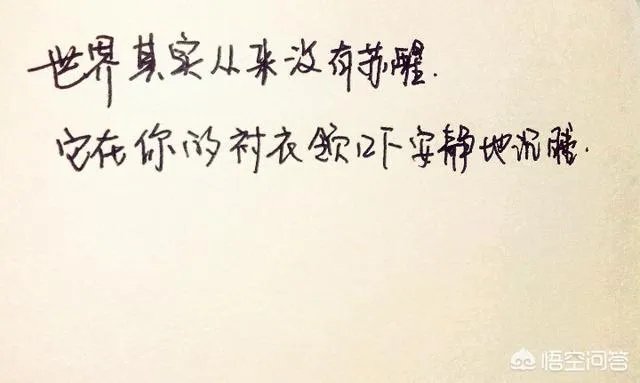 世界其实从来没有苏醒.
它在你的衬衣领口下安静地沉睡.
悟空问答